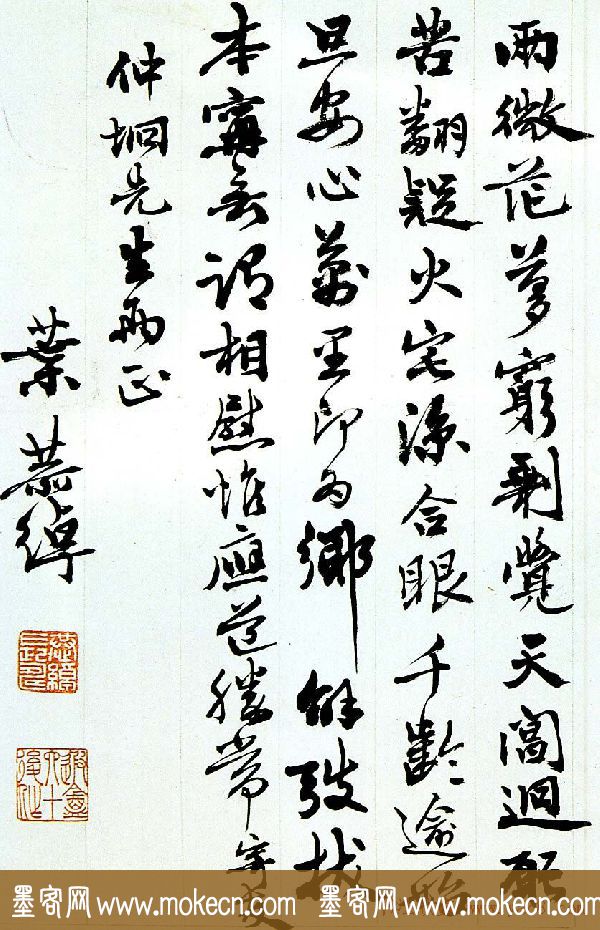 兩微茫夢窮剩覺天閶迥
苦翻疑火宅涼合眼千齡逾
旦安心萬里即為鄉
本寧無謂相慰惟應道勝常
仲坰先生兩正
葉恭綽
墨客网 www.mokecn.com 墨客网 www.mokecn.com